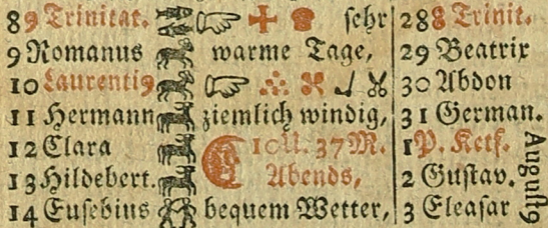 8 9 Trinitat. sehr 28 8 Trinit.
9 Romanus warme Tage, 29 Beatrix
10 Laurenti9 30 Abdon
11 Hermann ziemlich windig, 31 German.
12 Clara 10 U. 37 M. 1 P. Ketf.
13 Hildebert. Abends, 2 Gustav.
14 Eusebius bequem Wetter, 3 Eleasar
August9